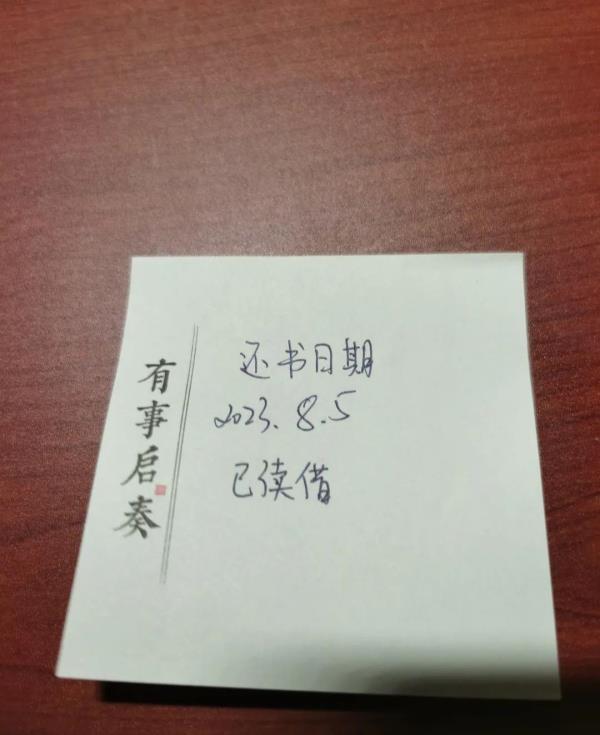 有事启奏
还书日期
2023.8.5
已续借